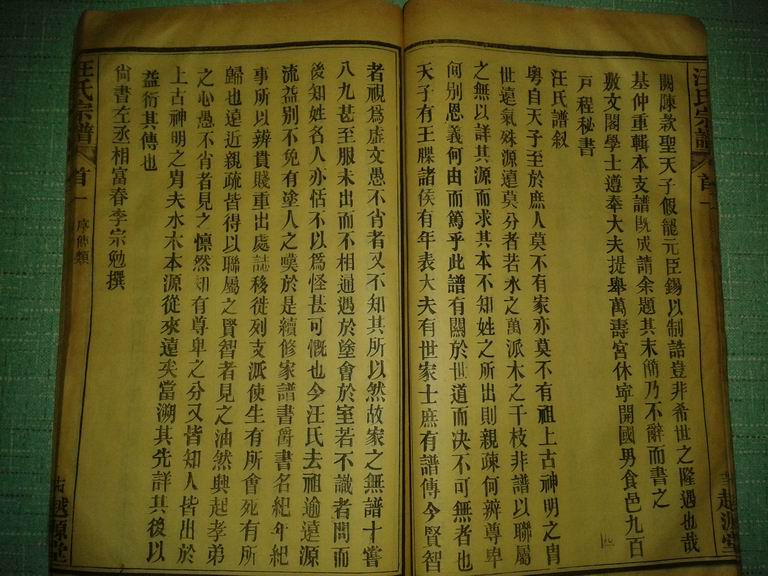 汪氏宗譜 首一
越源堂
闕陳款聖天子假龍元臣錫以制誥豈非希世之隆遇也哉
基仲重輯本支譜既成請余題其末簡乃不辭而書之
敷文閣學士遵奉大夫提舉萬壽宮休寧開國男食邑九百
戸程秘書
汪氏譜叙
粤自天子至於庶人莫不有家亦莫不有祖上古神明之胄
世遠氣殊源遠莫分者若水之萬派木之千枝非譜以聯屬
之無以詳其源而求其本不知姓之所出則親疎何辨尊卑
何别恩義何由而篤乎此譜有關於世道而决不可無者也
天子有王牒諸侯有年表大夫有世家士庶有譜傳今賢智
者視爲虚文愚不肖者又不知其所以然故家之無譜十嘗
八九甚至服未出而不相通遇於塗會於室若不識者問而
後知姓名人亦恬不以爲怪甚可慨也今汪氏去祖逾遠源
流益别不免有塗人之嘆於是續修家譜書爵書名紀年紀
事所以辨貴賤重出處誌移徙列支派使生有所會死有所
歸也遠近親疏皆得以聯屬之賢智者見之油然興起孝弟
之心愚不肖者見之懍然知有尊卑之分又皆知人皆出於
上古神明之胄夫水木本源從來遠矣當溯其先詳其後以
益衍其傳也
尚書左丞相富春李宗勉撰
汪氏宗譜 首一 序傳類
越源堂